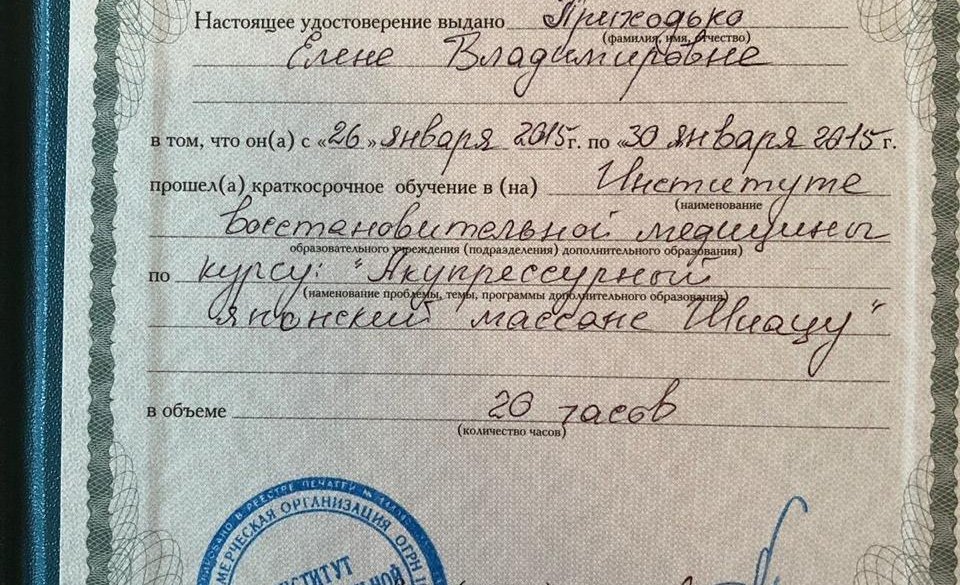 Настоящее удостоверение выдано Приходько
(фамилия, имя, отчество)
Елене Владимировне
в том, что он(а) с «26» января 2015г. по «30 января 2015 г.
прошел(а) краткосрочное обучение в (на) Институте
(наименование
восстановительной медицины
образовательного учреждения (подразделения) дополнительного образования)
по курсу: "Акупрессурный
(наименование проблемы, темы, программы дополнительного образования)
японский массаж Шиацу"
в объеме 20 часов
(количество часов)
РЕЕСТРЕ ПЕЧАТЕЙ №
ОРГАНИЗАЦИЯ ОГРН